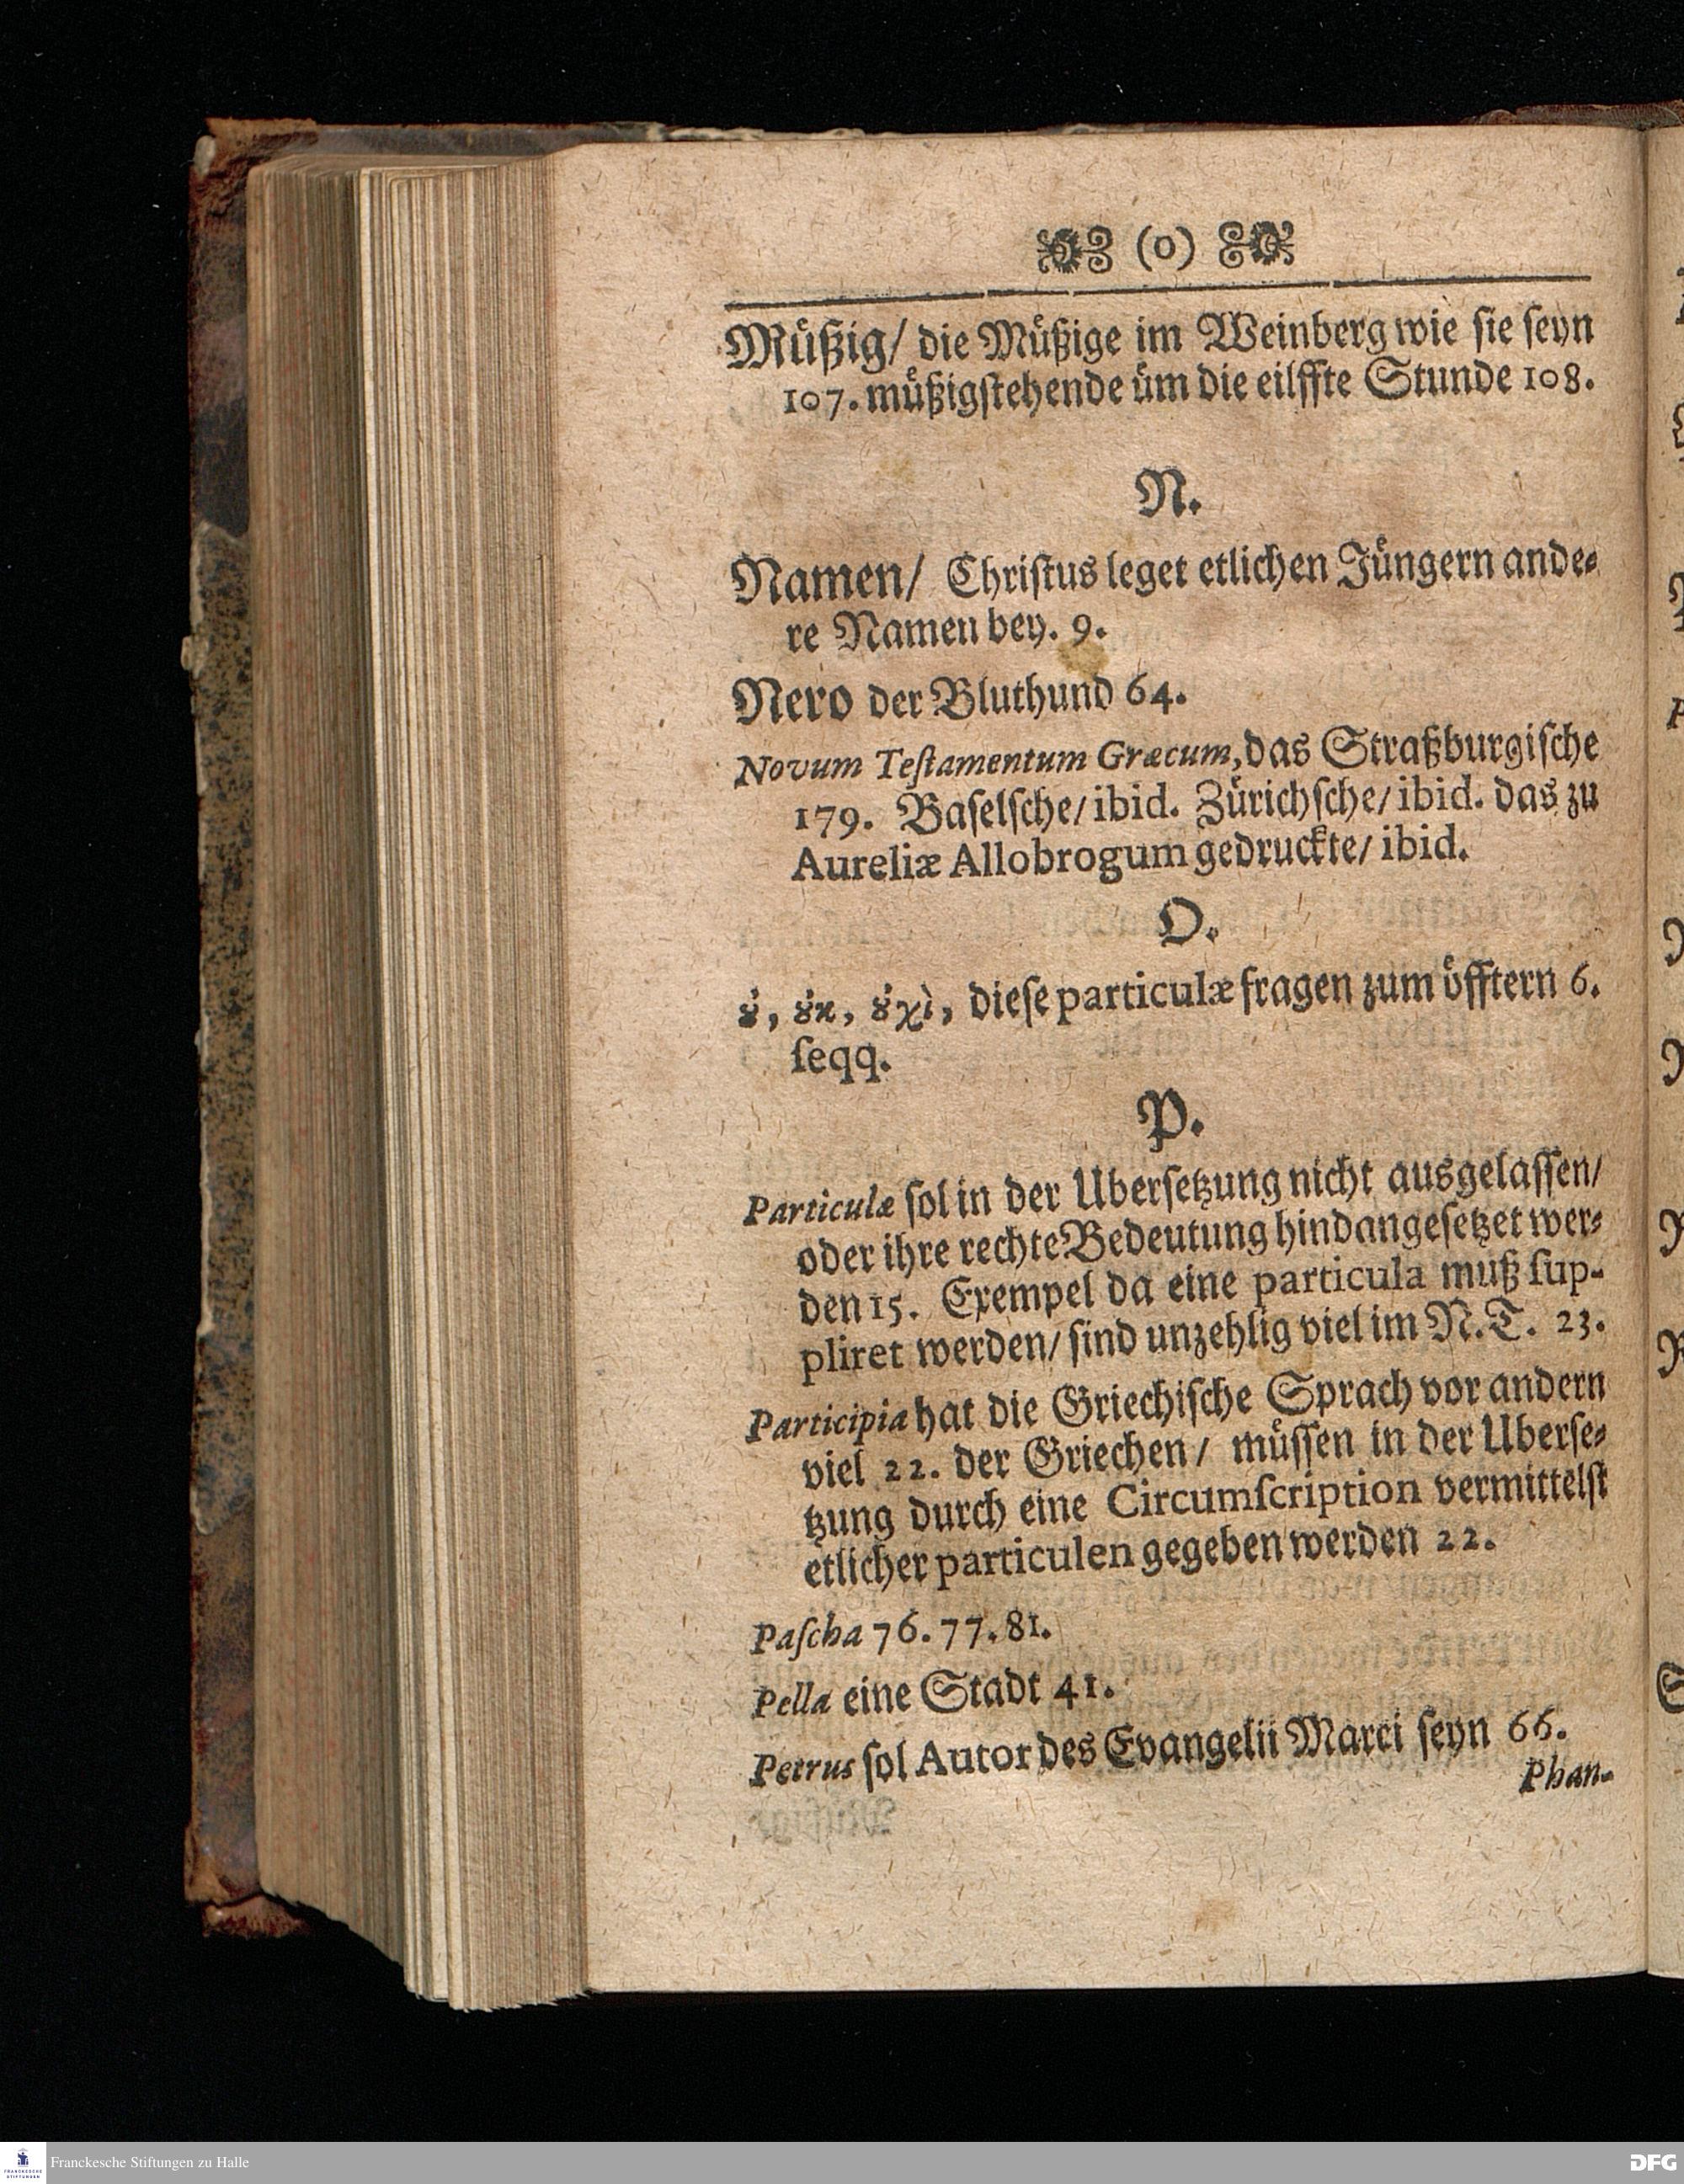 (o)
Müßig/ die Müßige im Weinberg wie sie seyn
107. müßigstehende üm die eilffte Stunde 108.
N.
Namen/ Christus leget etlichen Jüngern ande-
re Namen bey. 9.
Nero der Bluthund 64.
Novum Teſtamentum Græcum, das Straßburgische
179. Baselsche/ ibid. Zürichsche/ ibid. das zu
Aureliæ Allobrogum gedruckte/ ibid.
O.
ȣ̓, ȣ̓κ, ȣ̓χὶ, diese particulæ fragen zum öfftern 6.
ſeqq.
P.
Particulæ sol in der Ubersetzung nicht ausgelassen/
oder ihre rechte Bedeutung hindangesetzet wer-
den 15. Exempel da eine particula muß ſup-
pliret werden/ sind unzehlig viel im N.T. 23.
Participia hat die Griechische Sprach vor andern
viel 22. der Griechen/ müssen in der Uberse-
tzung durch eine Circumſcription vermittelst
etlicher particulen gegeben werden 22.
Paſcha 76. 77. 81.
Pella eine Stadt 41.
Petrus sol Autor des Evangelii Marci seyn 66.
Phan-
Franckesche Stiftungen zu Halle
DFG